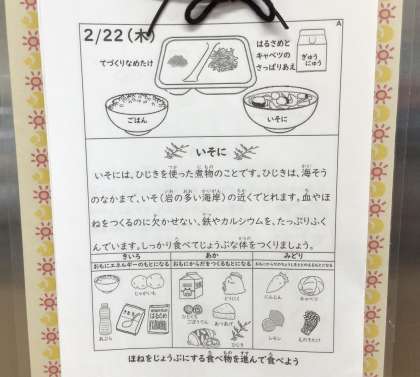 2/22(木)
A
てづくりなめたけ
はるさめと
キャベツの
さっぱりあえ
ぎゅう
にゅう
ごはん
いそに
いそに
いそには、ひじきを使った煮物のことです。ひじきは、海そう
のなかまで、いそ(岩の多い海岸)の近くでとれます。血やほ
ねをつくるのに欠かせない、鉄やカルシウムを、たっぷりふく
んでいます。しっかり食べてじょうぶな体をつくりましょう。
きいろ あか みどり
おもにエネルギーのもとになる おもにからだをつくるもとになる
こめ じゃがいも
あぶら
とりにく
あつあげ
ひじき
にんじん キャベツ
レモン えのきたけ
ほねをじょうぶにする食べ物を進んで食べよう